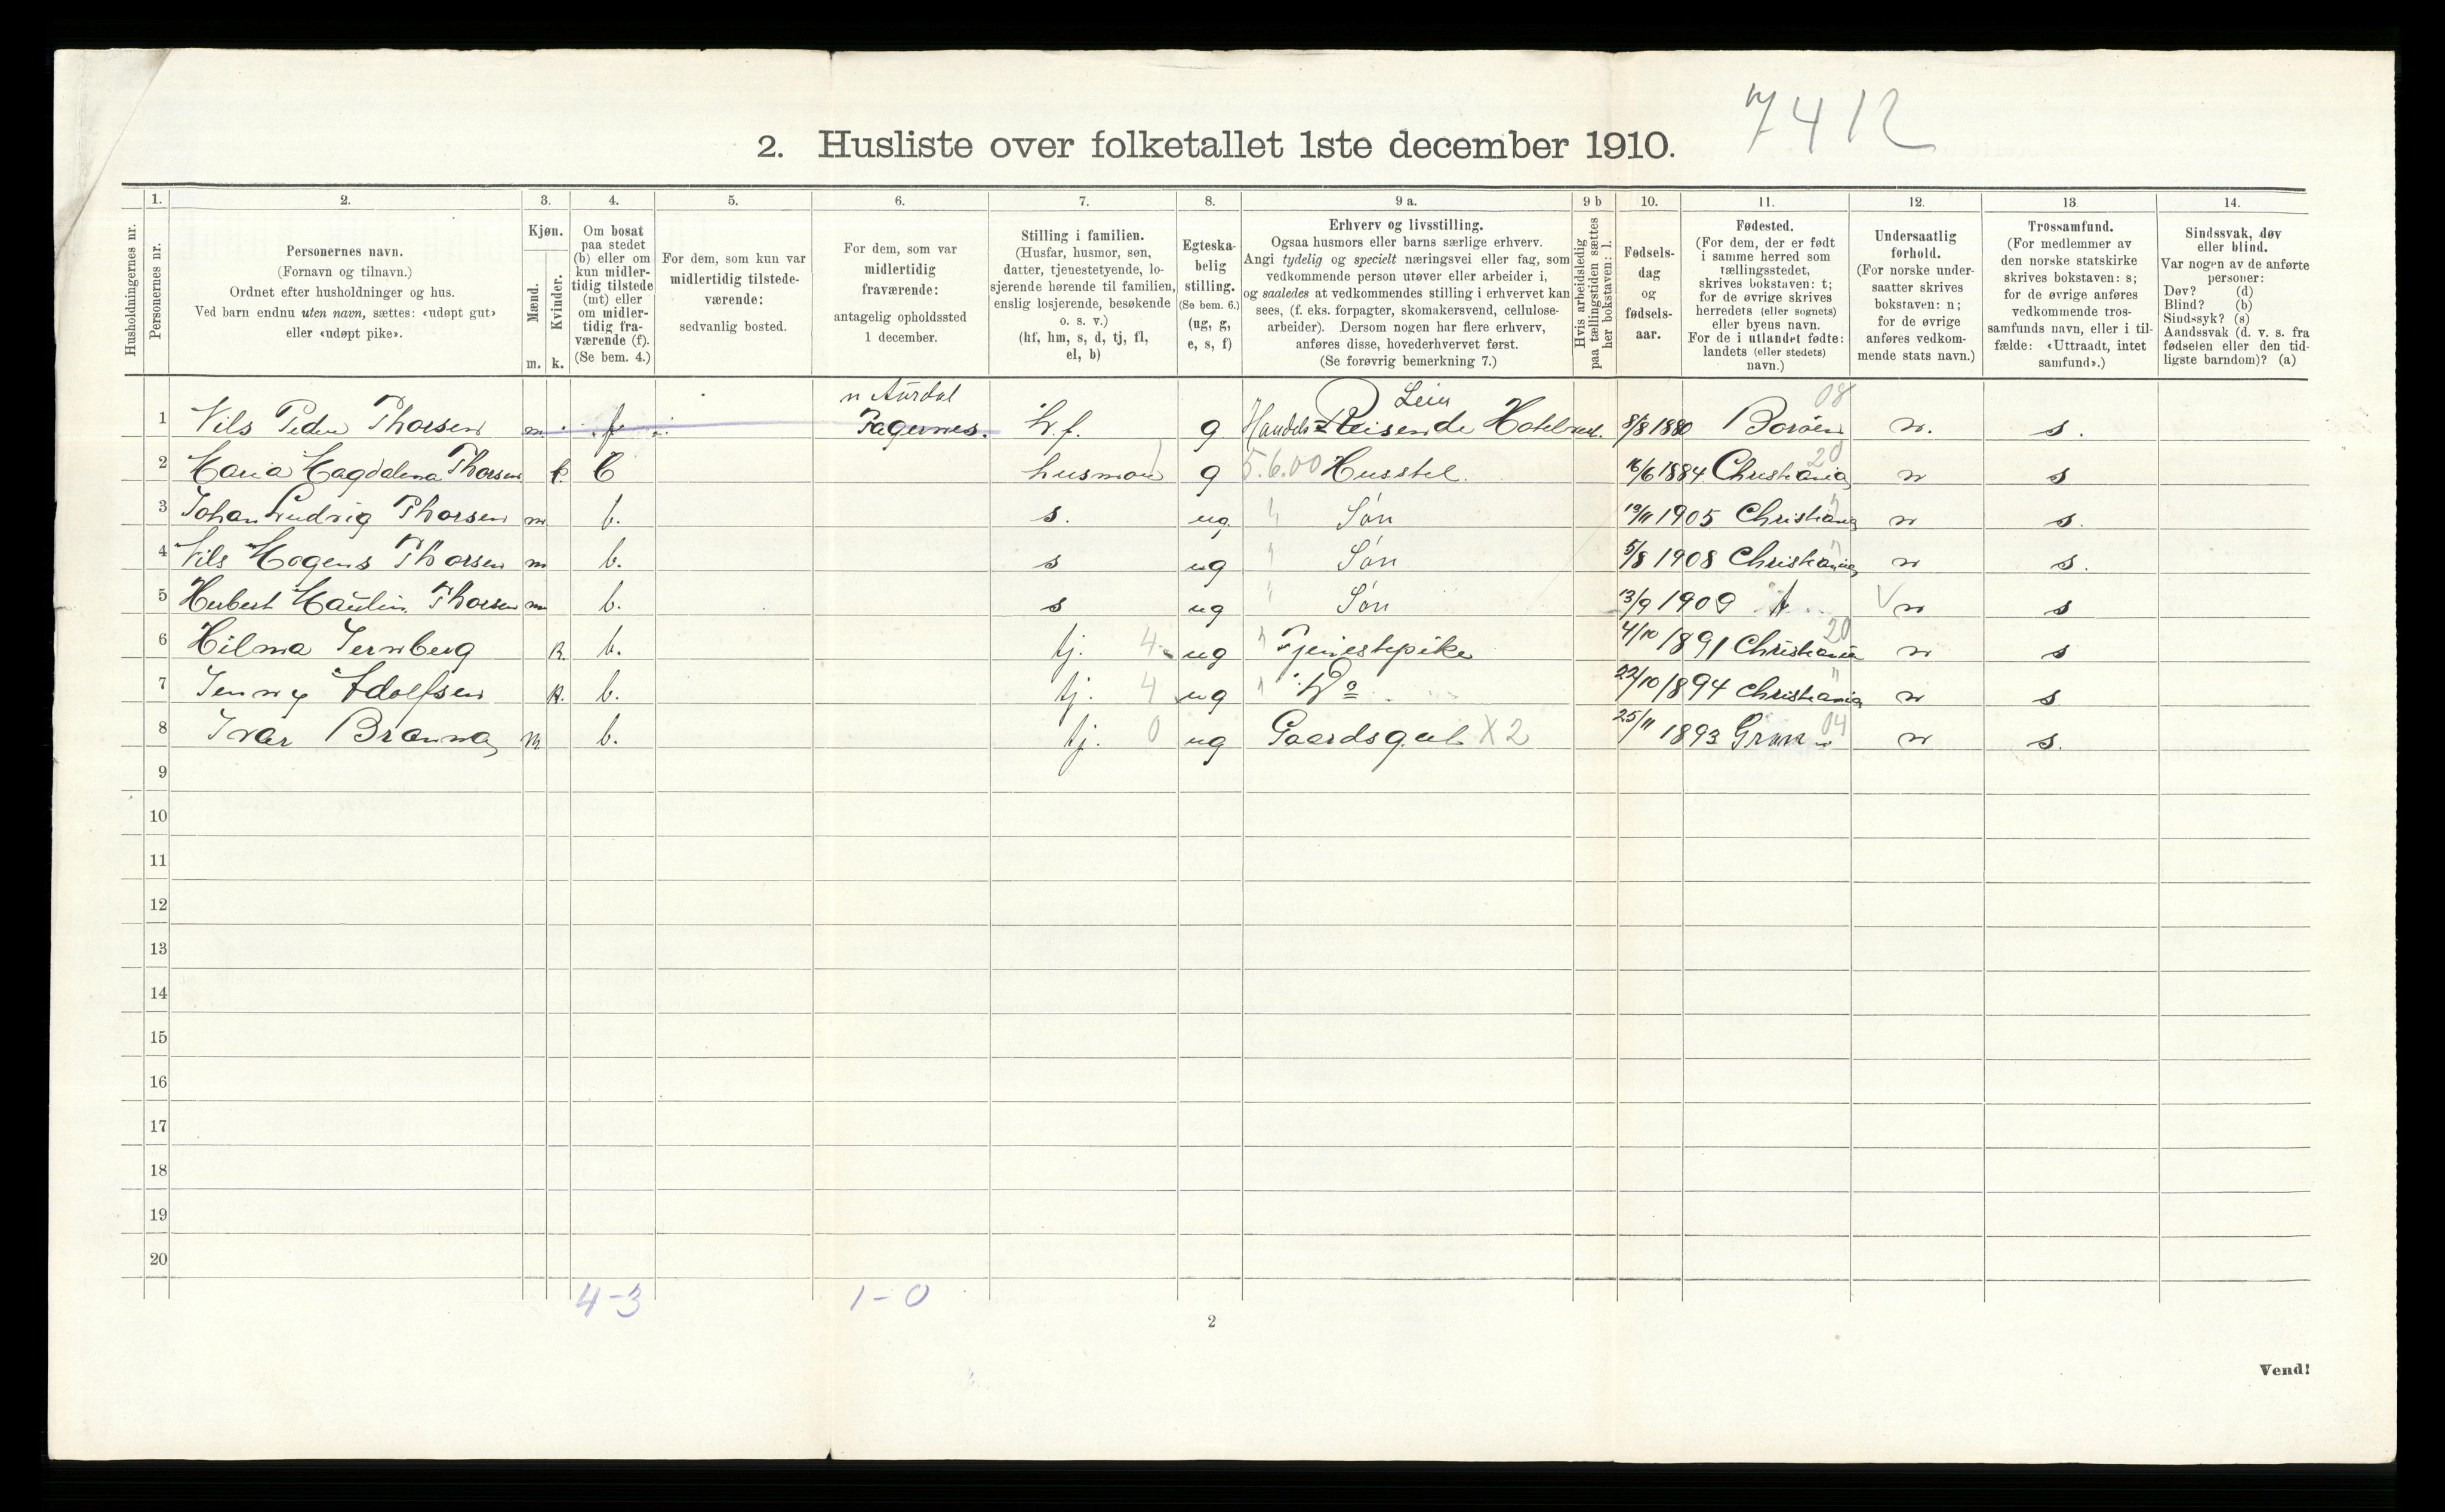 7412
2. Husliste over folketallet 1ste december 1910.
Husholdningernes nr.
1.
Personernes nr.
2.
Personernes navn.
(Fornavn og tilnavn.)
Ordnet efter husholdninger og hus.
Ved barn endnu uten navn, sættes: «udøpt gut»
eller «udøpt pike».
3.
Kjøn.
Mænd.
Kvinder.
m. k.
4.
Om bosat
paa stedet
(b) eller om
kun midler-
tidig tilstede
(mt) eller
om midler-
tidig fra-
værende (f).
(Se bem. 4.)
5.
For dem, som kun var
midlertidig tilstede-
værende:
sedvanlig bosted.
6.
For dem, som var
midlertidig
fraværende:
antagelig opholdssted
1 december.
7.
Stilling i familien.
(Husfar, husmor, søn,
datter, tjenestetyende, lo-
sjerende hørende til familien,
enslig losjerende, besøkende
o. s. v.)
(hf, hm, s, d, tj, fl,
el, b)
8.
Egteska-
belig
stilling.
(Se bem. 6.)
(ug, g,
e, s, f)
9 a.
Erhverv og livsstilling.
Ogsaa husmors eller barns særlige erhverv.
Angi tydelig og specielt næringsvei eller fag, som
vedkommende person utøver eller arbeider i,
og saaledes at vedkommendes stilling i erhvervet kan
sees, (f. eks. forpagter, skomakersvend, cellulose-
arbeider). Dersom nogen har flere erhverv,
anføres disse, hovederhvervet først.
(Se forøvrig bemerkning 7.)
9 b
Hvis arbeidsledig
paa tællingstiden sættes
her bokstaven: l.
10.
Fødsels-
dag
og
fødsels-
aar.
11.
Fødested.
(For dem, der er født
i samme herred som
tællingsstedet,
skrives bokstaven: t;
for de øvrige skrives
herredets (eller sognets)
eller byens navn.
For de i utlandet fødte:
landets (eller stedets)
navn.)
12.
Undersaatlig
forhold.
(For norske under-
saatter skrives
bokstaven: n;
for de øvrige
anføres vedkom-
mende stats navn.)
13.
Trossamfund.
(For medlemmer av
den norske statskirke
skrives bokstaven: s;
for de øvrige anføres
vedkommende tros-
samfunds navn, eller i til-
fælde: «Uttraadt, intet
samfund».)
14.
Sindssvak, døv
eller blind.
Var nogen av de anførte
personer:
Døv? (d)
Blind? (b)
Sindssyk? (s)
Aandssvak (d. v. s. fra
fødselen eller den tid-
ligste barndom)? (a)
n Aurdal Leier 08
1 Nils Peder Thorsen m. f Fagernes. h.f. g Handels Reisende Hotelvert. 8/8 1880 Borøen n. s.
2 Maria Magdalena Thorsen k. b husmor g 5.6.00 Husstel. 16/6 1884 Christiania 20 n s
3 Johan Ludvig Thorsen m. b. s. ug. " Søn 19/11 1905 Christiania " n s.
4 Nils Mogens Thorsen m b. s ug " Søn 5/8 1908 Christiania " n s.
5 Herbert Maulin Thorsen m b. s ug " Søn 13/9 1909 t. V n s
6 Hilma Jernberg k. b. tj. 4 ug " Tjenestepike 4/10 1891 Christiania 20 n s
7 Jenny Adolfsen k. b. tj. 4 ug " Do 22/10 1894 Christiania " n s
8 Ivar Branna m b. tj. 0 ug Gaardsgut X2 25/11 1893 Grue 04 n s.
9
10
11
12
13
14
15
16
17
18
19
20
4-3 1-0
2
Vend!